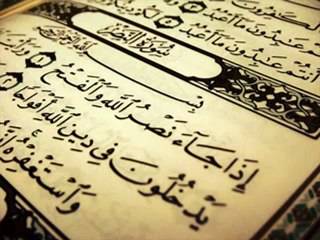 الْكَٰفِرُونَ
عَٰبِدُونَ مَآ أَعْبُدُ
أَنتُمْ عَٰبِدُونَ مَآ أَعْبُدُ
سُورَةُ النَّصْرِ
بِسْمِ
إِذَا جَآءَ نَصْرُ اللَّهِ وَالْفَتْحُ ١ وَرَأَيْتَ
يَدْخُلُونَ فِى دِينِ اللَّهِ أَفْوَاجًا ٢
وَاسْتَغْفِرْهُ